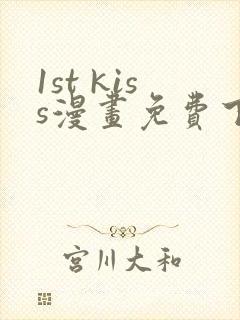 1st kis
s漫畫免費下
宮川大和